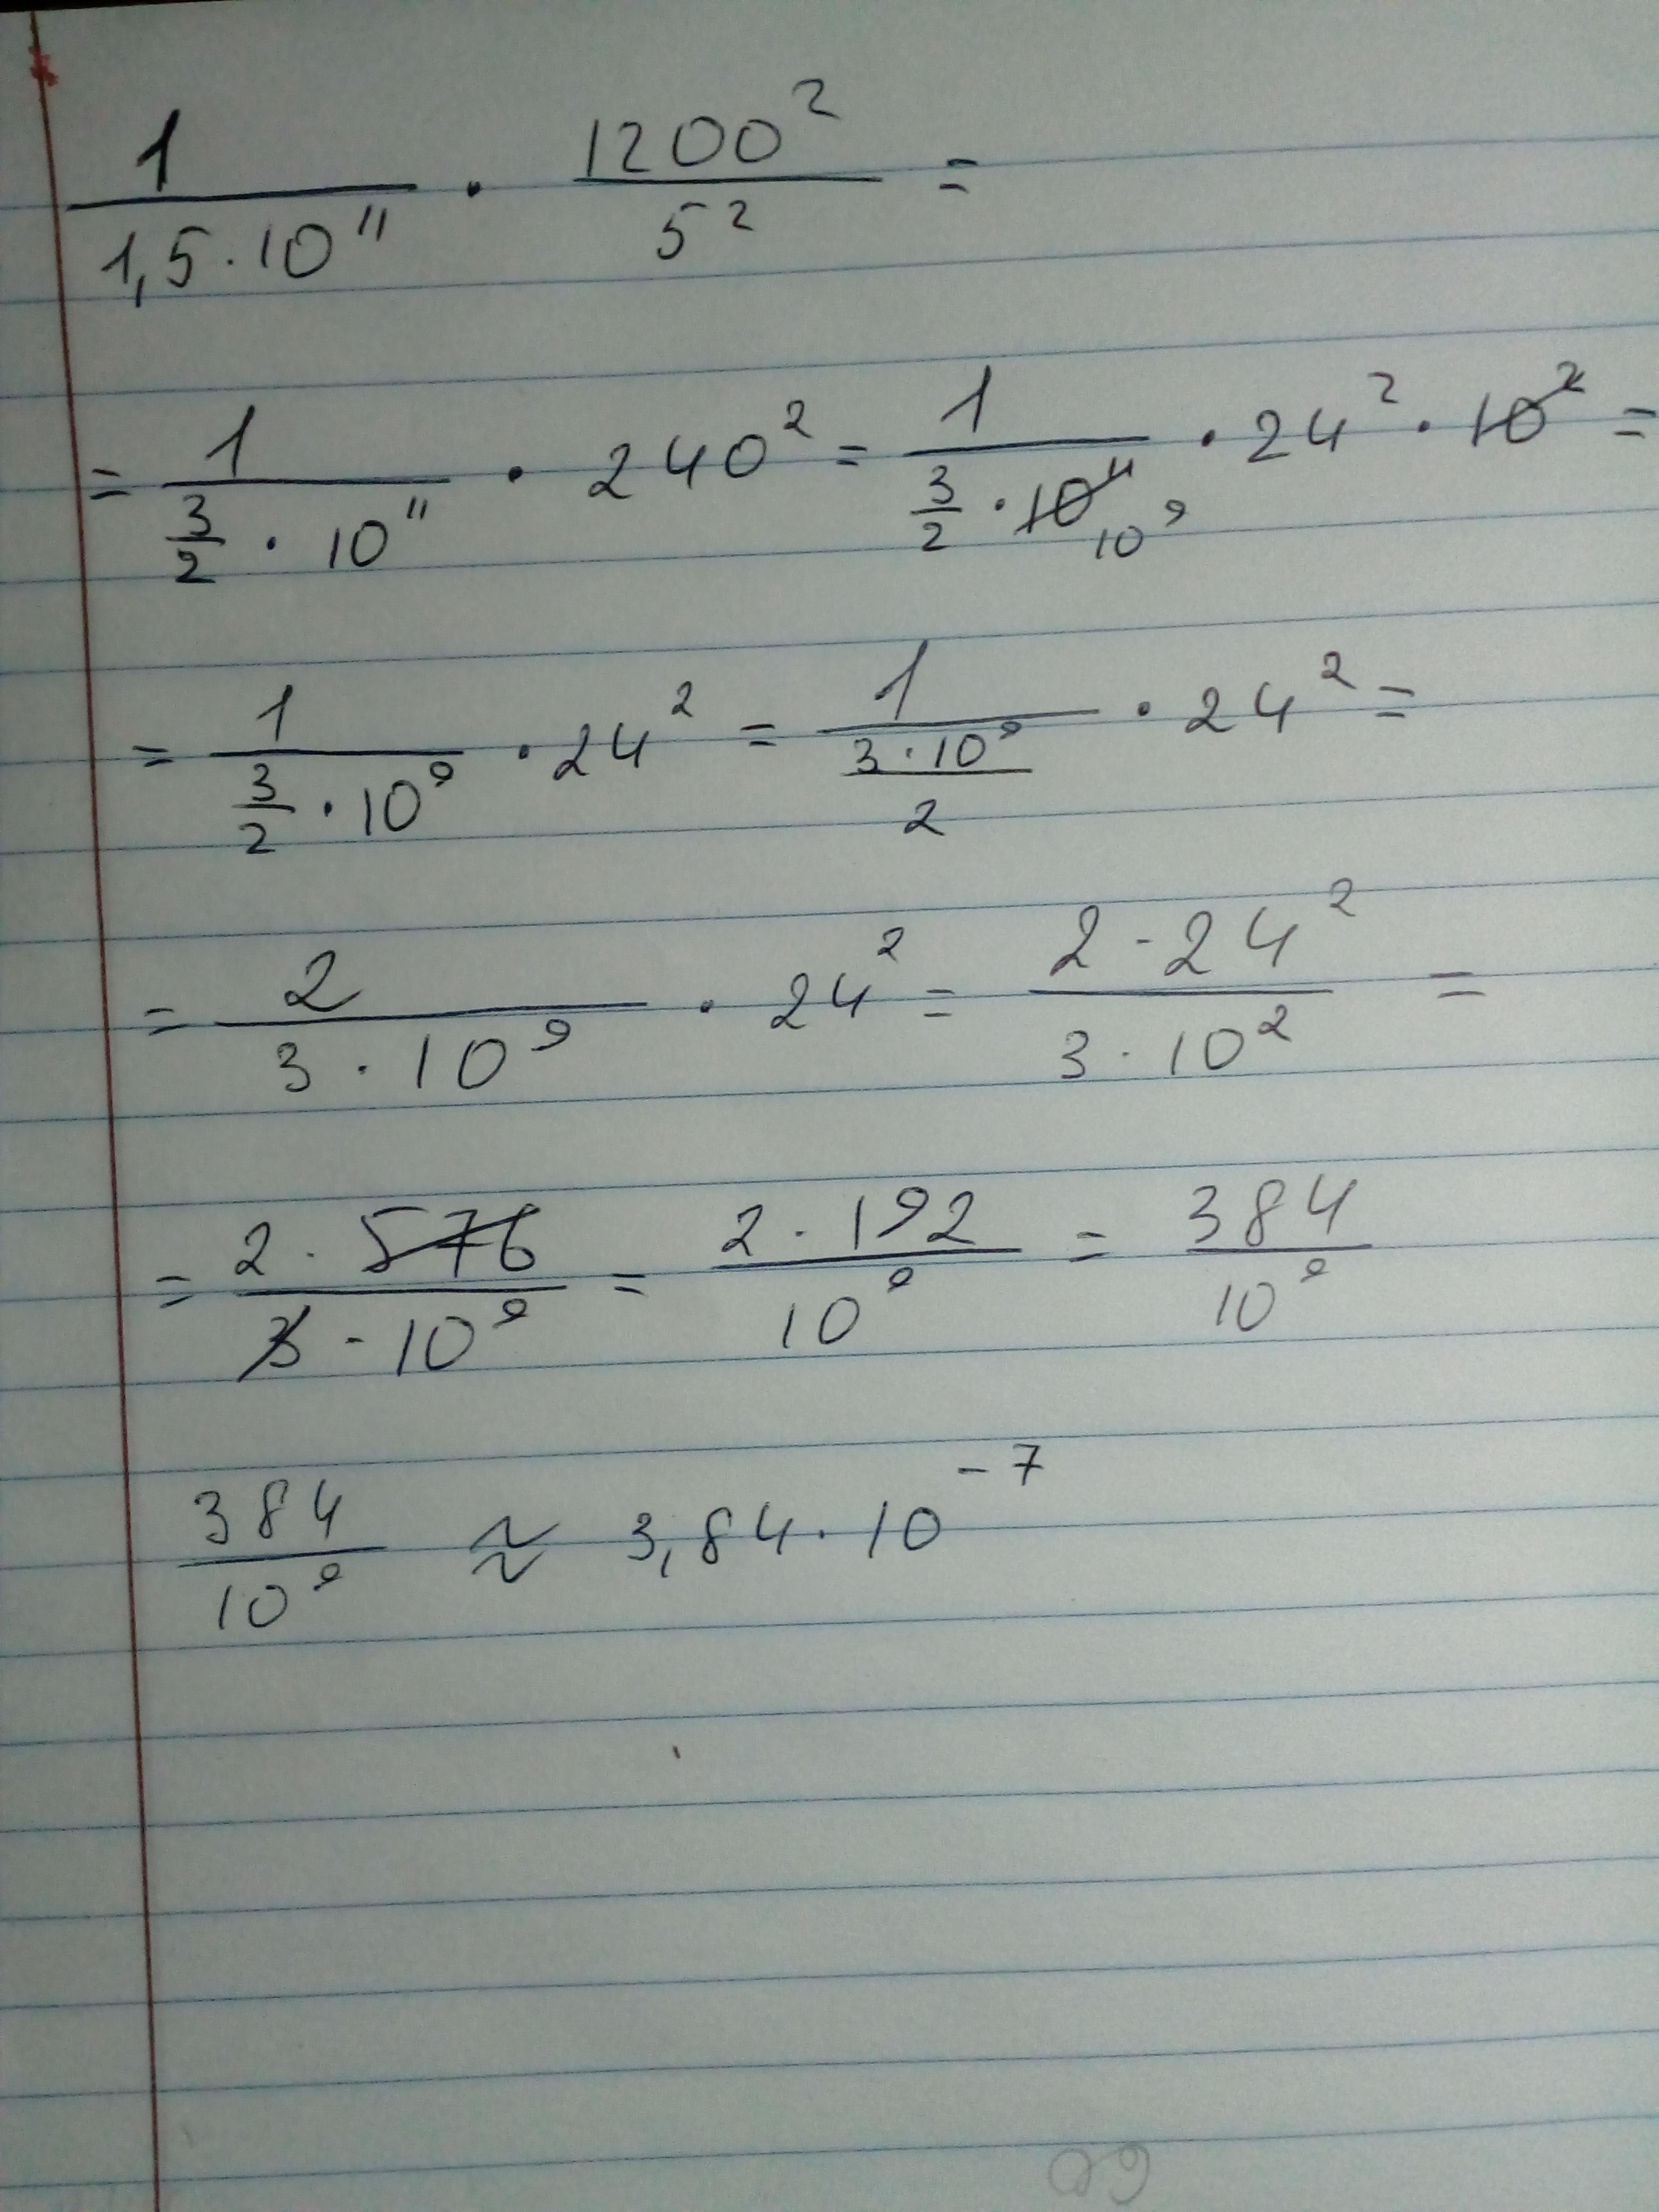 1/(1,5·10^11) · 1200²/5² =
= 1/(3/2 · 10^11) · 240² = 1/(3/2 · 10^11 10^9) · 24² · 10² =
= 1/(3/2 · 10^9) · 24² = 1/(3·10^9/2) · 24² =
= 2/(3 · 10^9) · 24² = 2·24²/(3·10²) =
= 2·576/(3·10^9) = 2·192/10^9 = 384/10^9
384/10^9 ≈ 3,84·10^-7